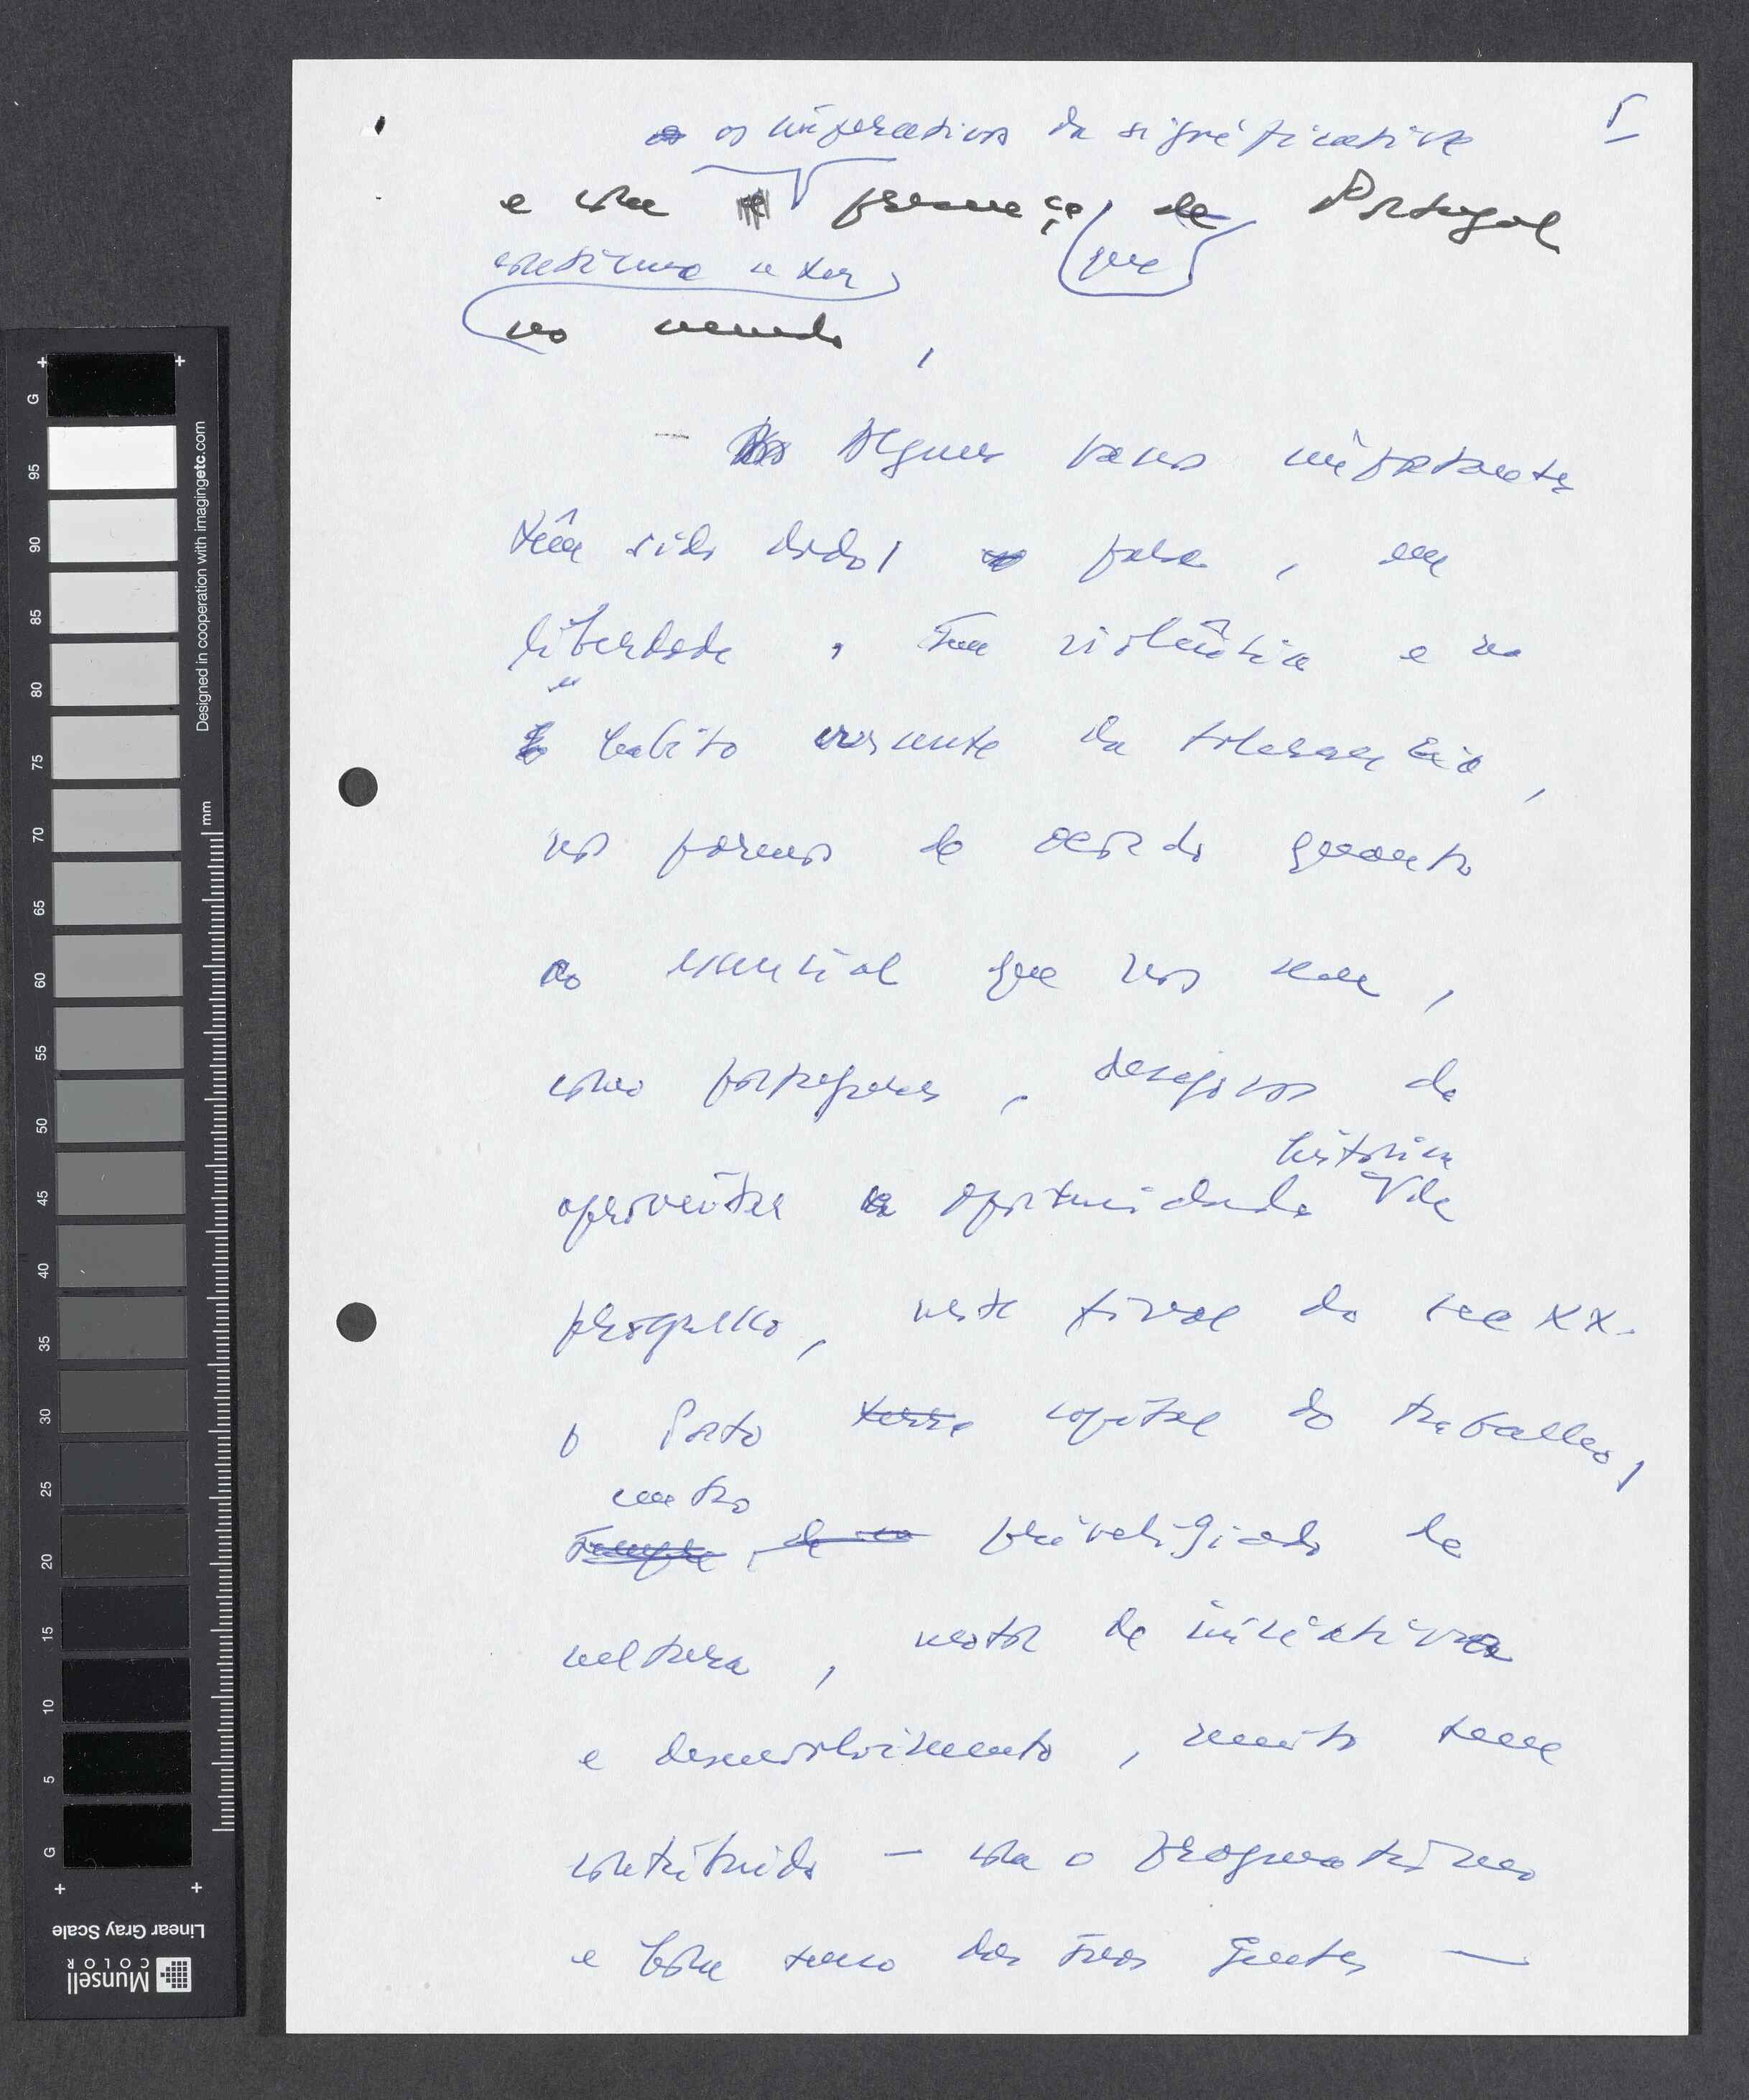 os imperativos da significativa
e com presença de Portugal
continua a ter que
no mundo,
Alguns passos importantes
têm sido dados para, em
liberdade, sem violência e no
hábito crescente da tolerância,
nas formas de acordo quanto
ao essencial que nos une,
como portugueses, desejosos de
histórica
aproveitar a oportunidade de
progresso, neste final do sec XX.
o Porto terra capital do trabalho,
centro
sempre de privilegiado de
cultura, motor de iniciativa
e desenvolvimento, muito tem
contribuido — com o pragmatismo
e bom senso das suas gentes —
I
G
95
90
85
80
75
70
65
60
55
50
45
40
35
30
25
20
15
10
5
G
mm
Designed in cooperation with imagingetc.com
Linear Gray Scale
Munsell
COLOR